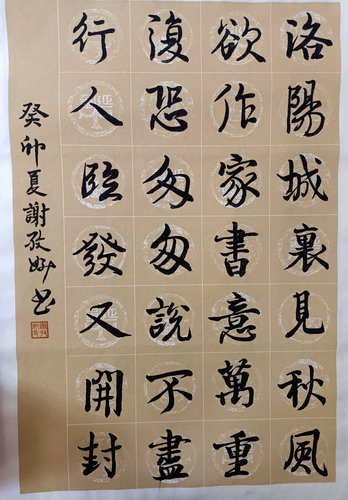 洛陽城裏見秋風
欲作家書意萬重
復恐匆匆說不盡
行人臨發又開封
癸卯夏謝孜妙書